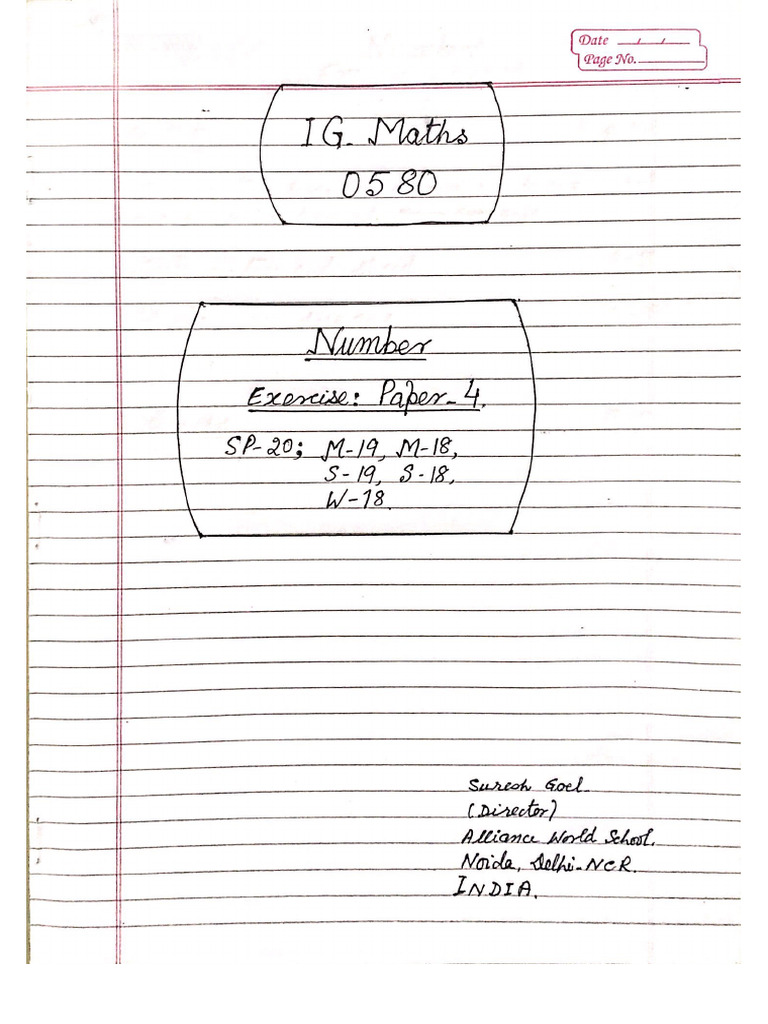 Date __/__/__
Page No.______
IG- Maths
0580
Number
Exercise: Paper-4.
SP-20; M-19, M-18,
S-19, S-18,
W-18.
Suresh Goel.
(Director)
Alliance World School.
Noida, Delhi-NCR.
INDIA.